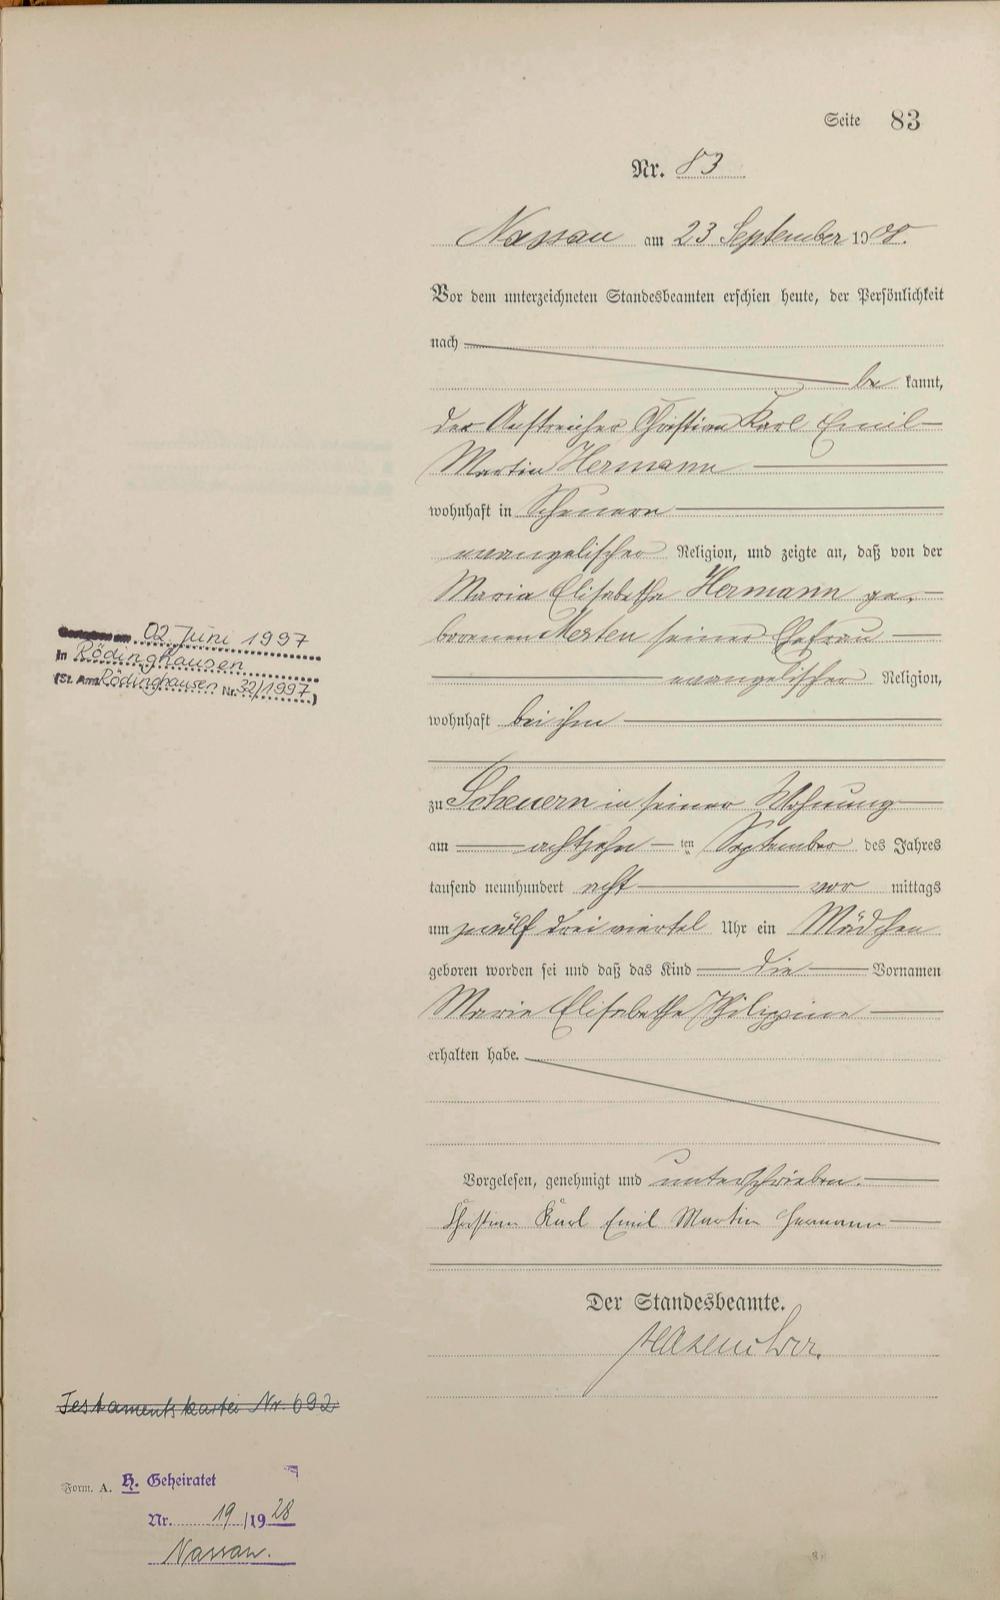 Seite 83
Nr. 83
Nassau am 23 September 1908.
Vor dem unterzeichneten Standesbeamten erschien heute, der Persönlichkeit
nach
be kannt,
der Anstreicher Christian Karl Emil
Martin Hermann
wohnhaft in Scheuern
evangelischer Religion, und zeigte an, daß von der
Maria Elisabetha Hermann ge-
borenen Merten seiner Ehefrau
evangelischer Religion,
wohnhaft bei ihm
zu Scheuern in seiner Wohnung
am achtzehn ten September des Jahres
tausend neunhundert acht vor mittags
um zwölf drei viertel Uhr ein Mädchen
geboren worden sei und daß das Kind die Vornamen
Marie Elisabetha Philippine
erhalten habe.
Vorgelesen, genehmigt und unterschrieben.
Christian Karl Emil Martin Hermann
Der Standesbeamte.
Gestorben am 02. Juni 1997
in Rödinghausen
(St. Amt Rödinghausen Nr. 32/1997)
Testamentskartei Nr. 692
Form. A. H. Geheiratet
Nr. 19/1928
Nassau.